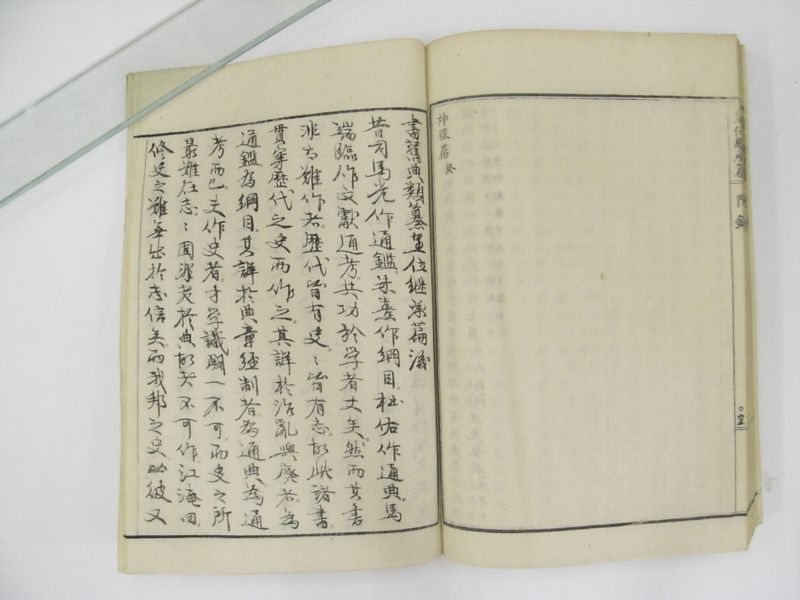 神器篇 終
附録
書舊典類纂皇位繼承篇後
昔司馬光作通鑑朱熹作綱目杜佑作通典馬
端臨作文獻通考其功於学者丈矣然而其書
非有難作者歷代皆有史〻皆有志故此諸書
貫穿歷代之史而作之其詳於治亂興廢者為
通鑑為綱目其詳於典章經制者為通典為通
考而已夫作史者才学識闕一不可而史之所
最難在志〻固非老於典故者不可作江淹曰
修史之難無出於志信矣而我邦之史與彼又